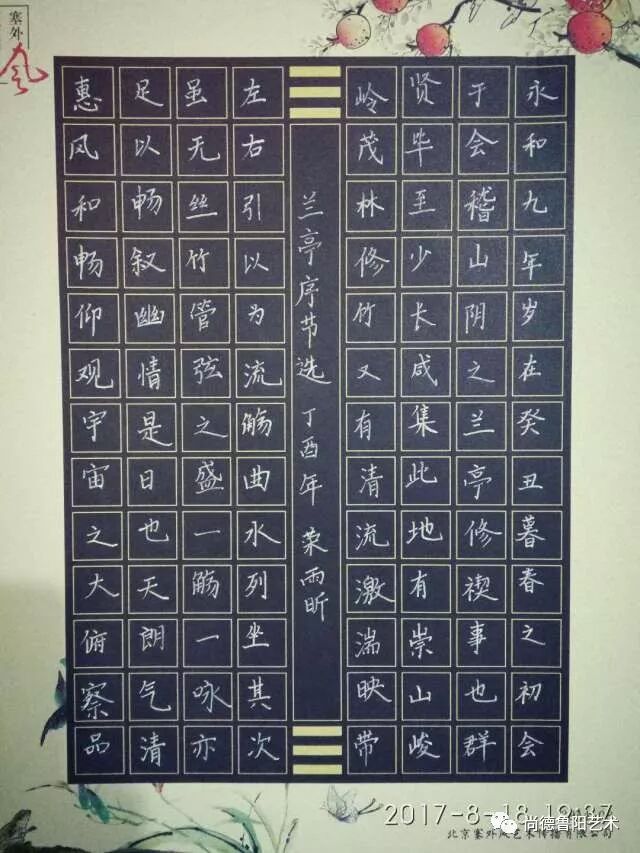 塞外
风
永和九年岁在癸丑暮春之初会
于会山阴之兰亭修禊事也群
贤毕至少长咸集此地有崇山峻
岭茂林修竹又有清流激湍映带
兰亭序节选 丁酉年 荣雨昕
左右引以为流觞曲水列坐其次
虽无丝竹管弦之盛一觞一咏亦
足以畅叙幽情是日也天朗气清
惠风和畅仰观宇宙之大俯察品
2017-8-18 19:37
尚德鲁阳艺术
北京塞外风艺术传播有限公司